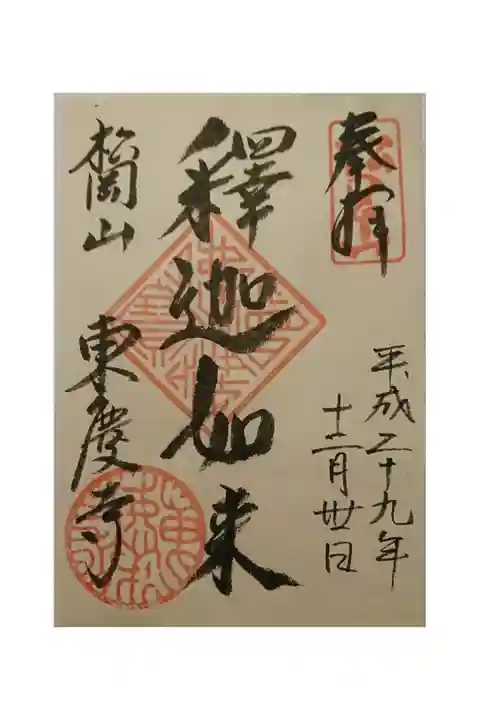 奉拝
平成二十九年
十二月丗日
釋迦如来
松岡山
東慶寺